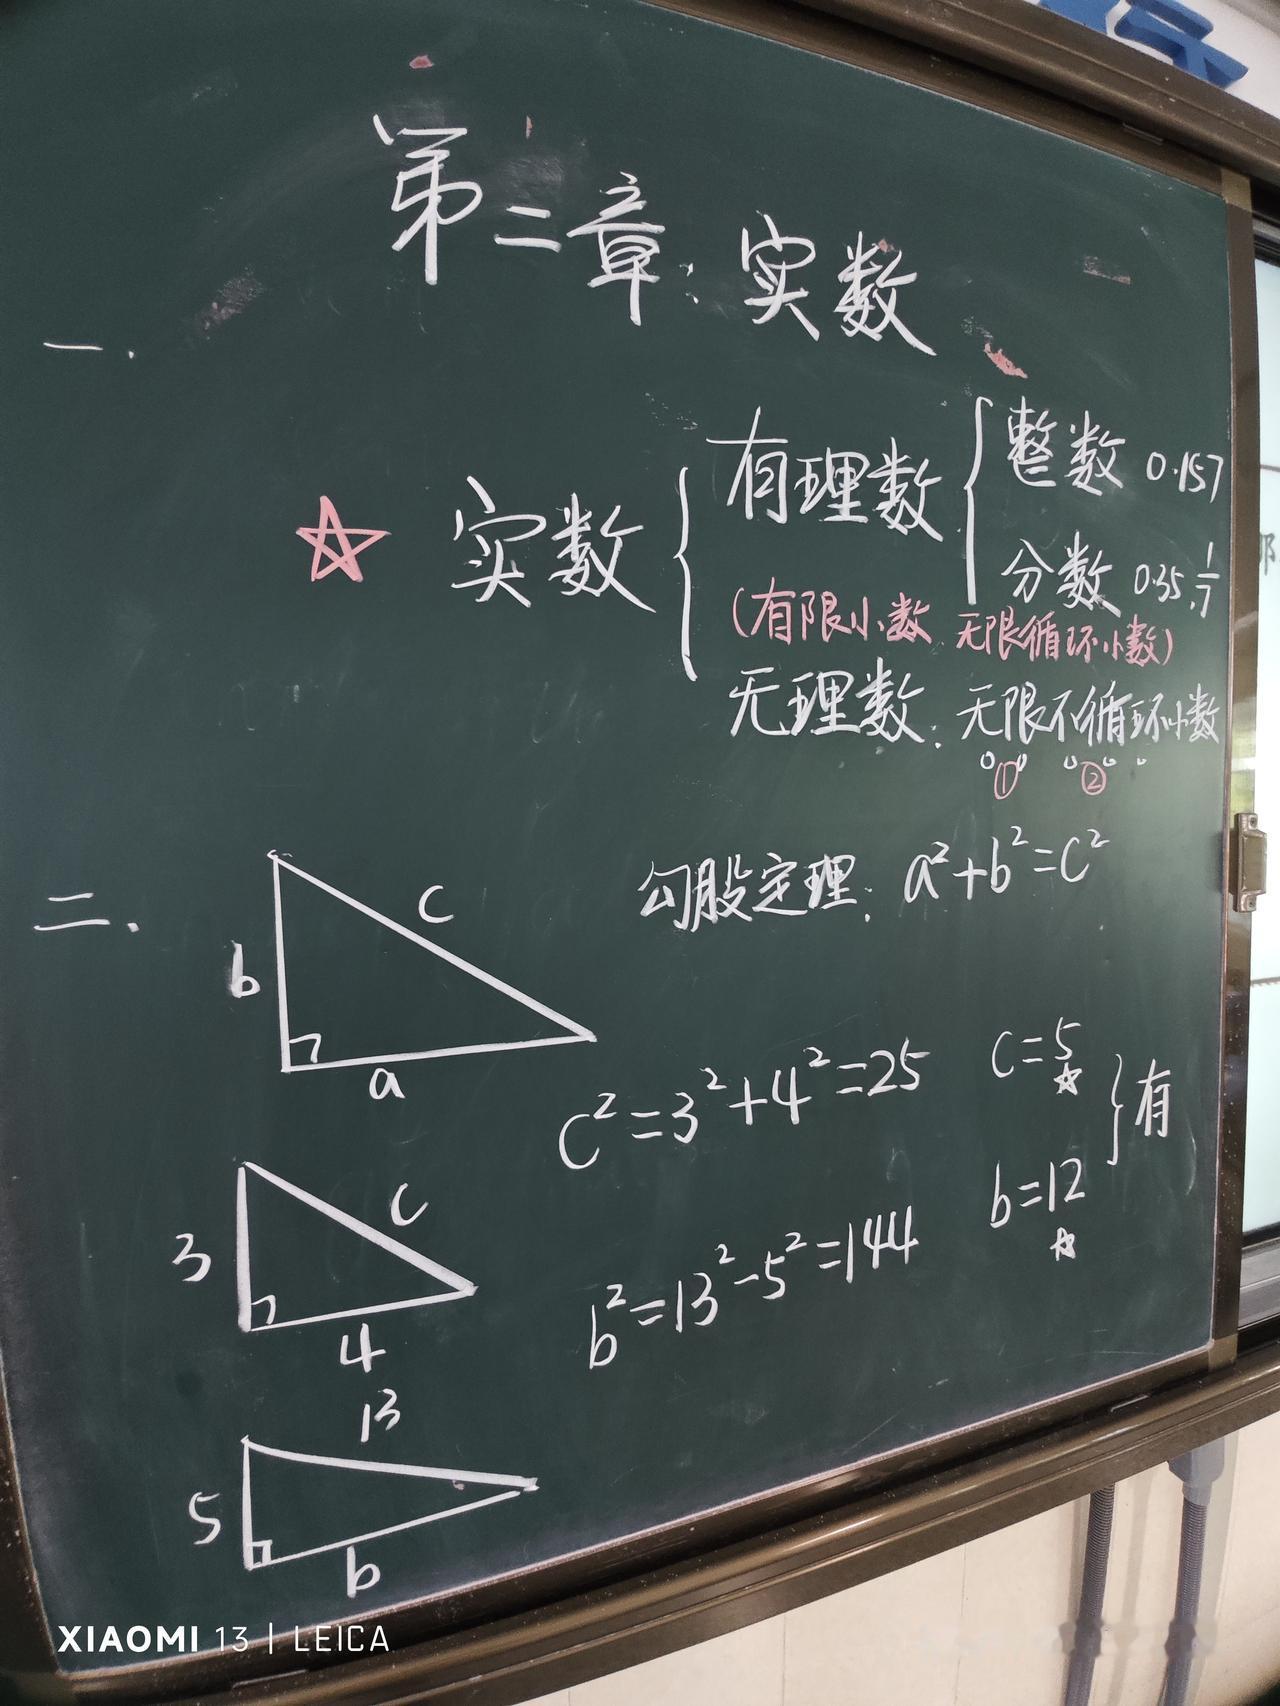 第二章:实数
一.
☆ 实数 { 有理数 { 整数 0.157
分数 0.35, 1/7
(有限小数 无限循环小数)
无理数: 无限不循环小数
① ②
二.
勾股定理: a²+b²=c²
c
b
a
c²=3²+4²=25 c=5
} 有
3
c
4
b²=13²-5²=144 b=12
13
5
b
XIAOMI 13 | LEICA